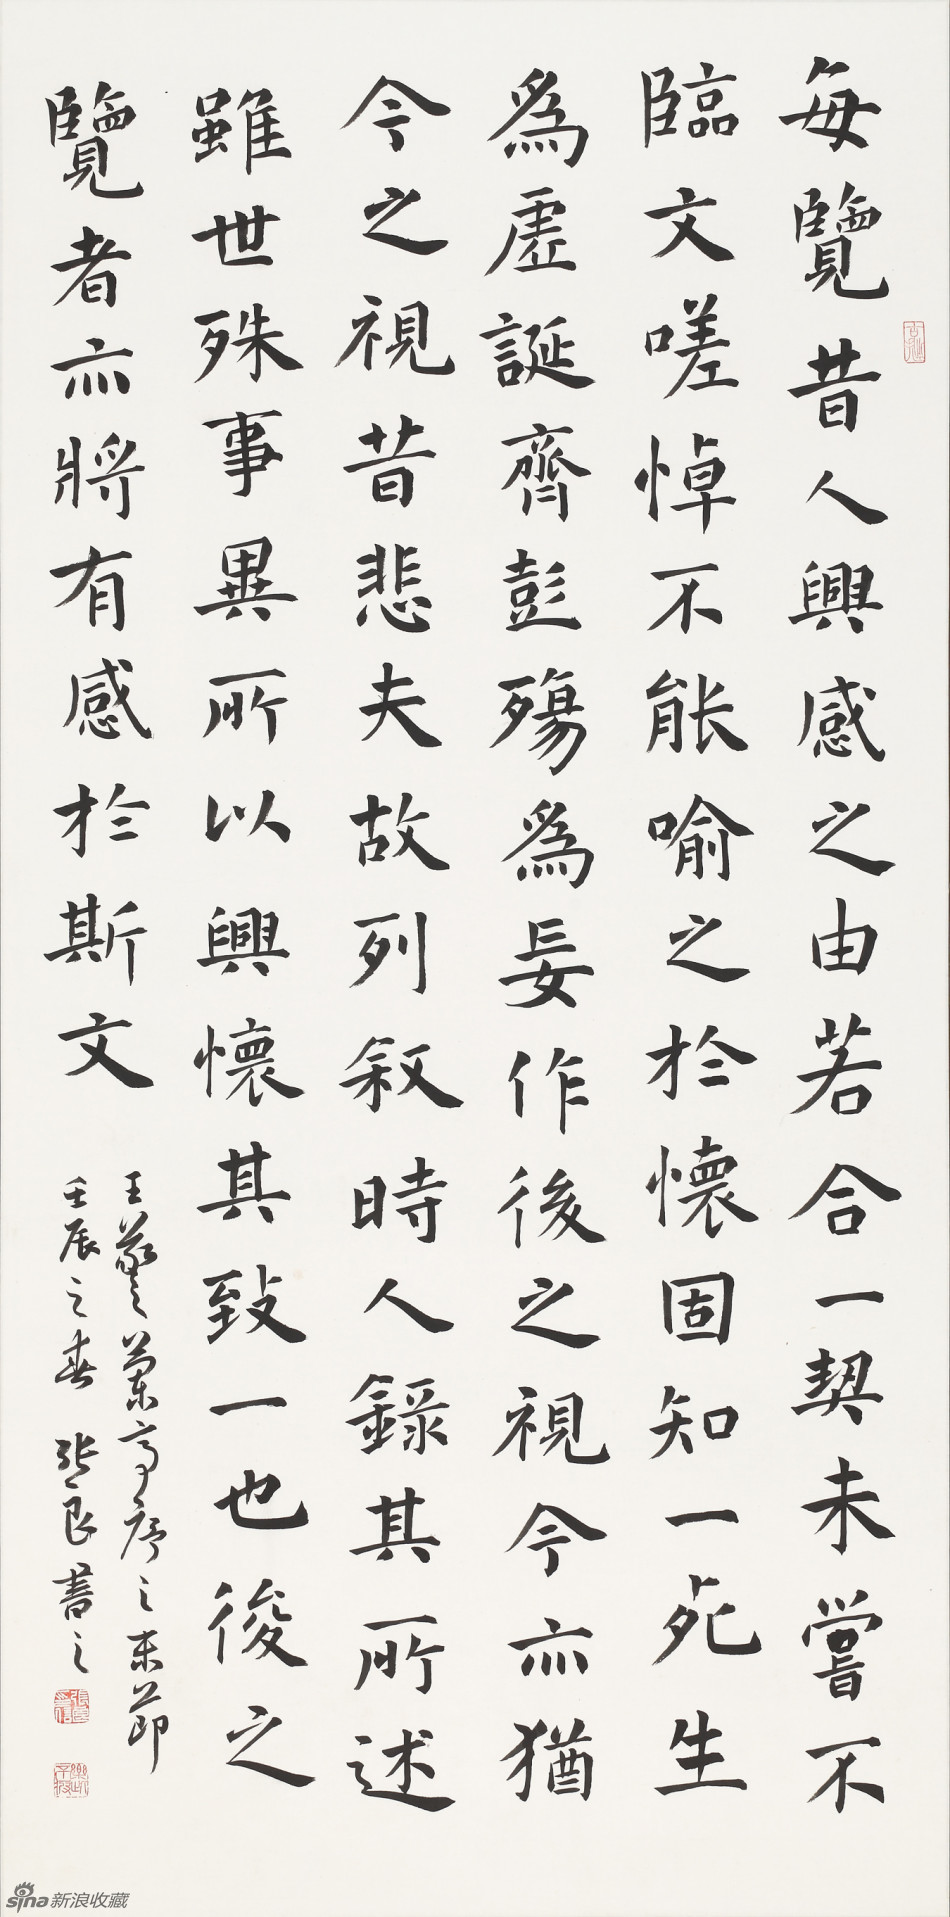 每覽昔人興感之由若合一契未嘗不
臨文嗟悼不能喻之於懷固知一死生
為虛誕齊彭殤為妄作後之視今亦猶
今之視昔悲夫故列敘時人錄其所述
雖世殊事異所以興懷其致一也後之
覽者亦將有感於斯文
王羲之蘭亭序之末節
壬辰之春 張良書之
sina新浪收藏